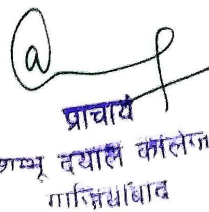 प्राचार्य
शम्भू दयाल कॉलेज
गाजियाबाद